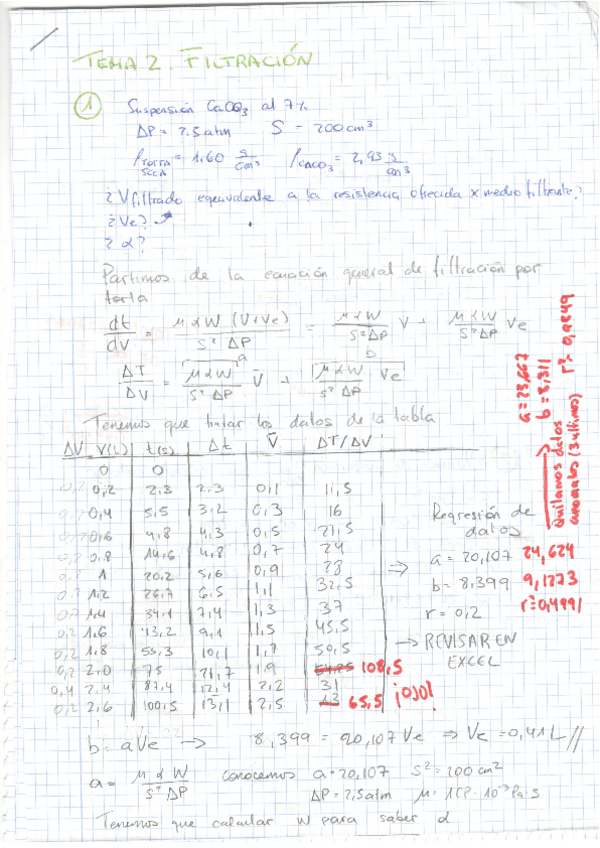 TEMA 2. FILTRACIÓN
① Suspensión CaCO₃ al 7%
ΔP = 2,5 atm S = 200 cm³
ρ TORTA SECA = 1,60 g/cm³ ρ CaCO₃ = 2,93 g/cm³
¿V filtrado equivalente a la resistencia ofrecida x medio filtrante?
¿Ve?
¿α?
Partimos de la ecuación general de filtración por
torta
dt/dV = μαW (V+Ve) / S²ΔP = μαW/S²ΔP V + μαW/S²ΔP Ve
ΔT/ΔV = μαW/S²ΔP V̄ + μαW/S²ΔP Ve
a b
Tenemos que tratar los datos de la tabla
ΔV V(L) t(s) Δt V̄ ΔT/ΔV
0 0
0,2 0,2 2,3 2,3 0,1 11,5
0,2 0,4 5,5 3,2 0,3 16
0,2 0,6 9,8 4,3 0,5 21,5
0,2 0,8 14,6 4,8 0,7 24
0,2 1 20,2 5,6 0,9 28
0,2 1,2 26,7 6,5 1,1 32,5
0,2 1,4 34,1 7,4 1,3 37
0,2 1,6 43,2 9,1 1,5 45,5
0,2 1,8 53,3 10,1 1,7 50,5
0,2 2,0 75 21,7 1,9 108,5
0,4 2,4 87,4 12,4 2,2 31
0,2 2,6 100,5 13,1 2,5 65,5 ¡OJO!
⇒ Regresión de
datos
a = 20,107 24,624
b = 8,399 9,1273
r = 0,2 r² = 0,4991
→ REVISAR EN
EXCEL
Quitamos datos
anómalos (3 últimos)
a = 23,667
b = 8,311
r² = 0,9849
b = aVe → 8,399 = 20,107 Ve ⇒ Ve = 0,41 L //
a = μαW/S²ΔP conocemos a = 20,107 S² = 200 cm²
ΔP = 2,5 atm μ = 1 CP = 10⁻³ Pa·s
Tenemos que calcular W para saber α